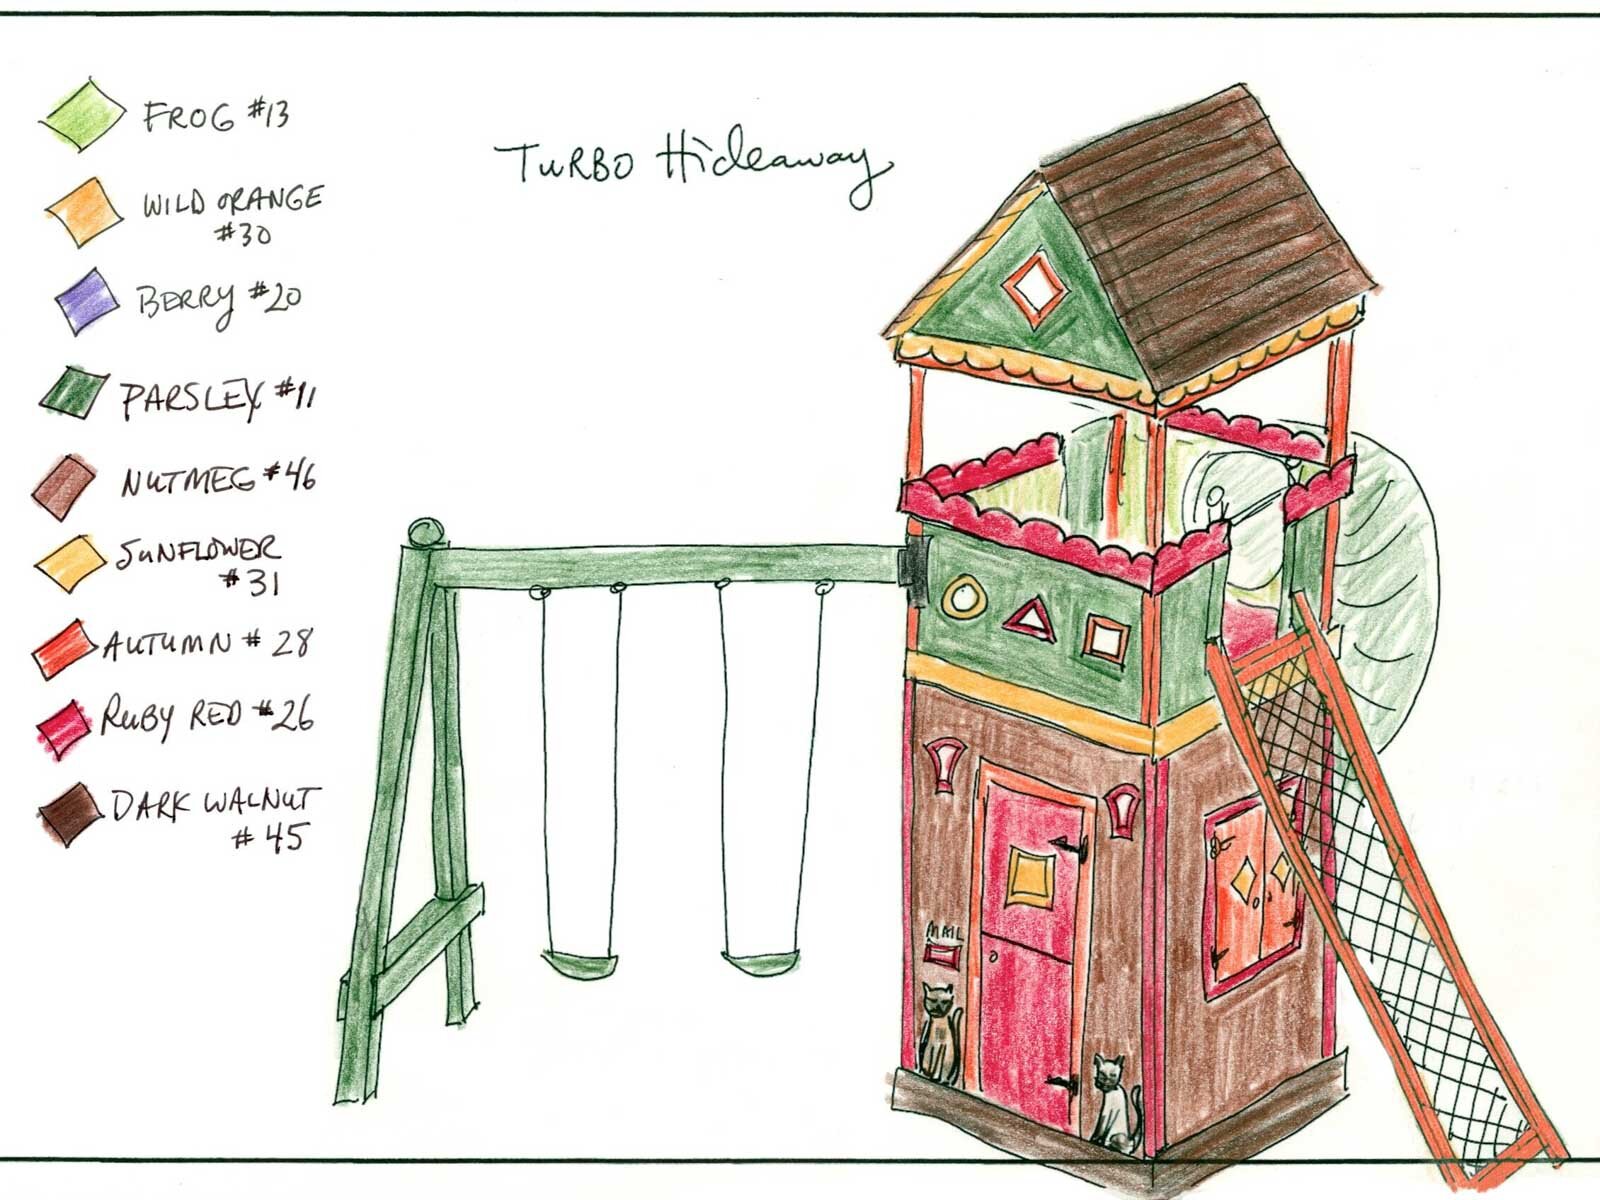 FROG #13
WILD ORANGE
#30
BERRY #20
PARSLEY #11
NUTMEG #46
SUNFLOWER
#31
AUTUMN #28
RUBY RED #26
DARK WALNUT
#45
TURBO Hideaway
MAIL